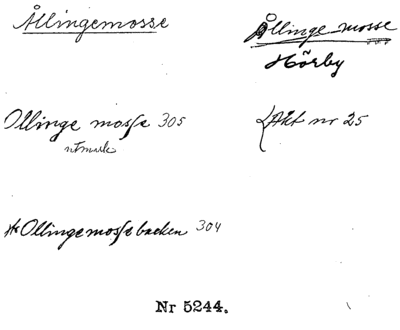 Ållingemosse
Ållinge mosse
Hörby
Ollinge mosse 305
utmark
Akt nr 25
Ollingemossebacken 304
Nr 5244.